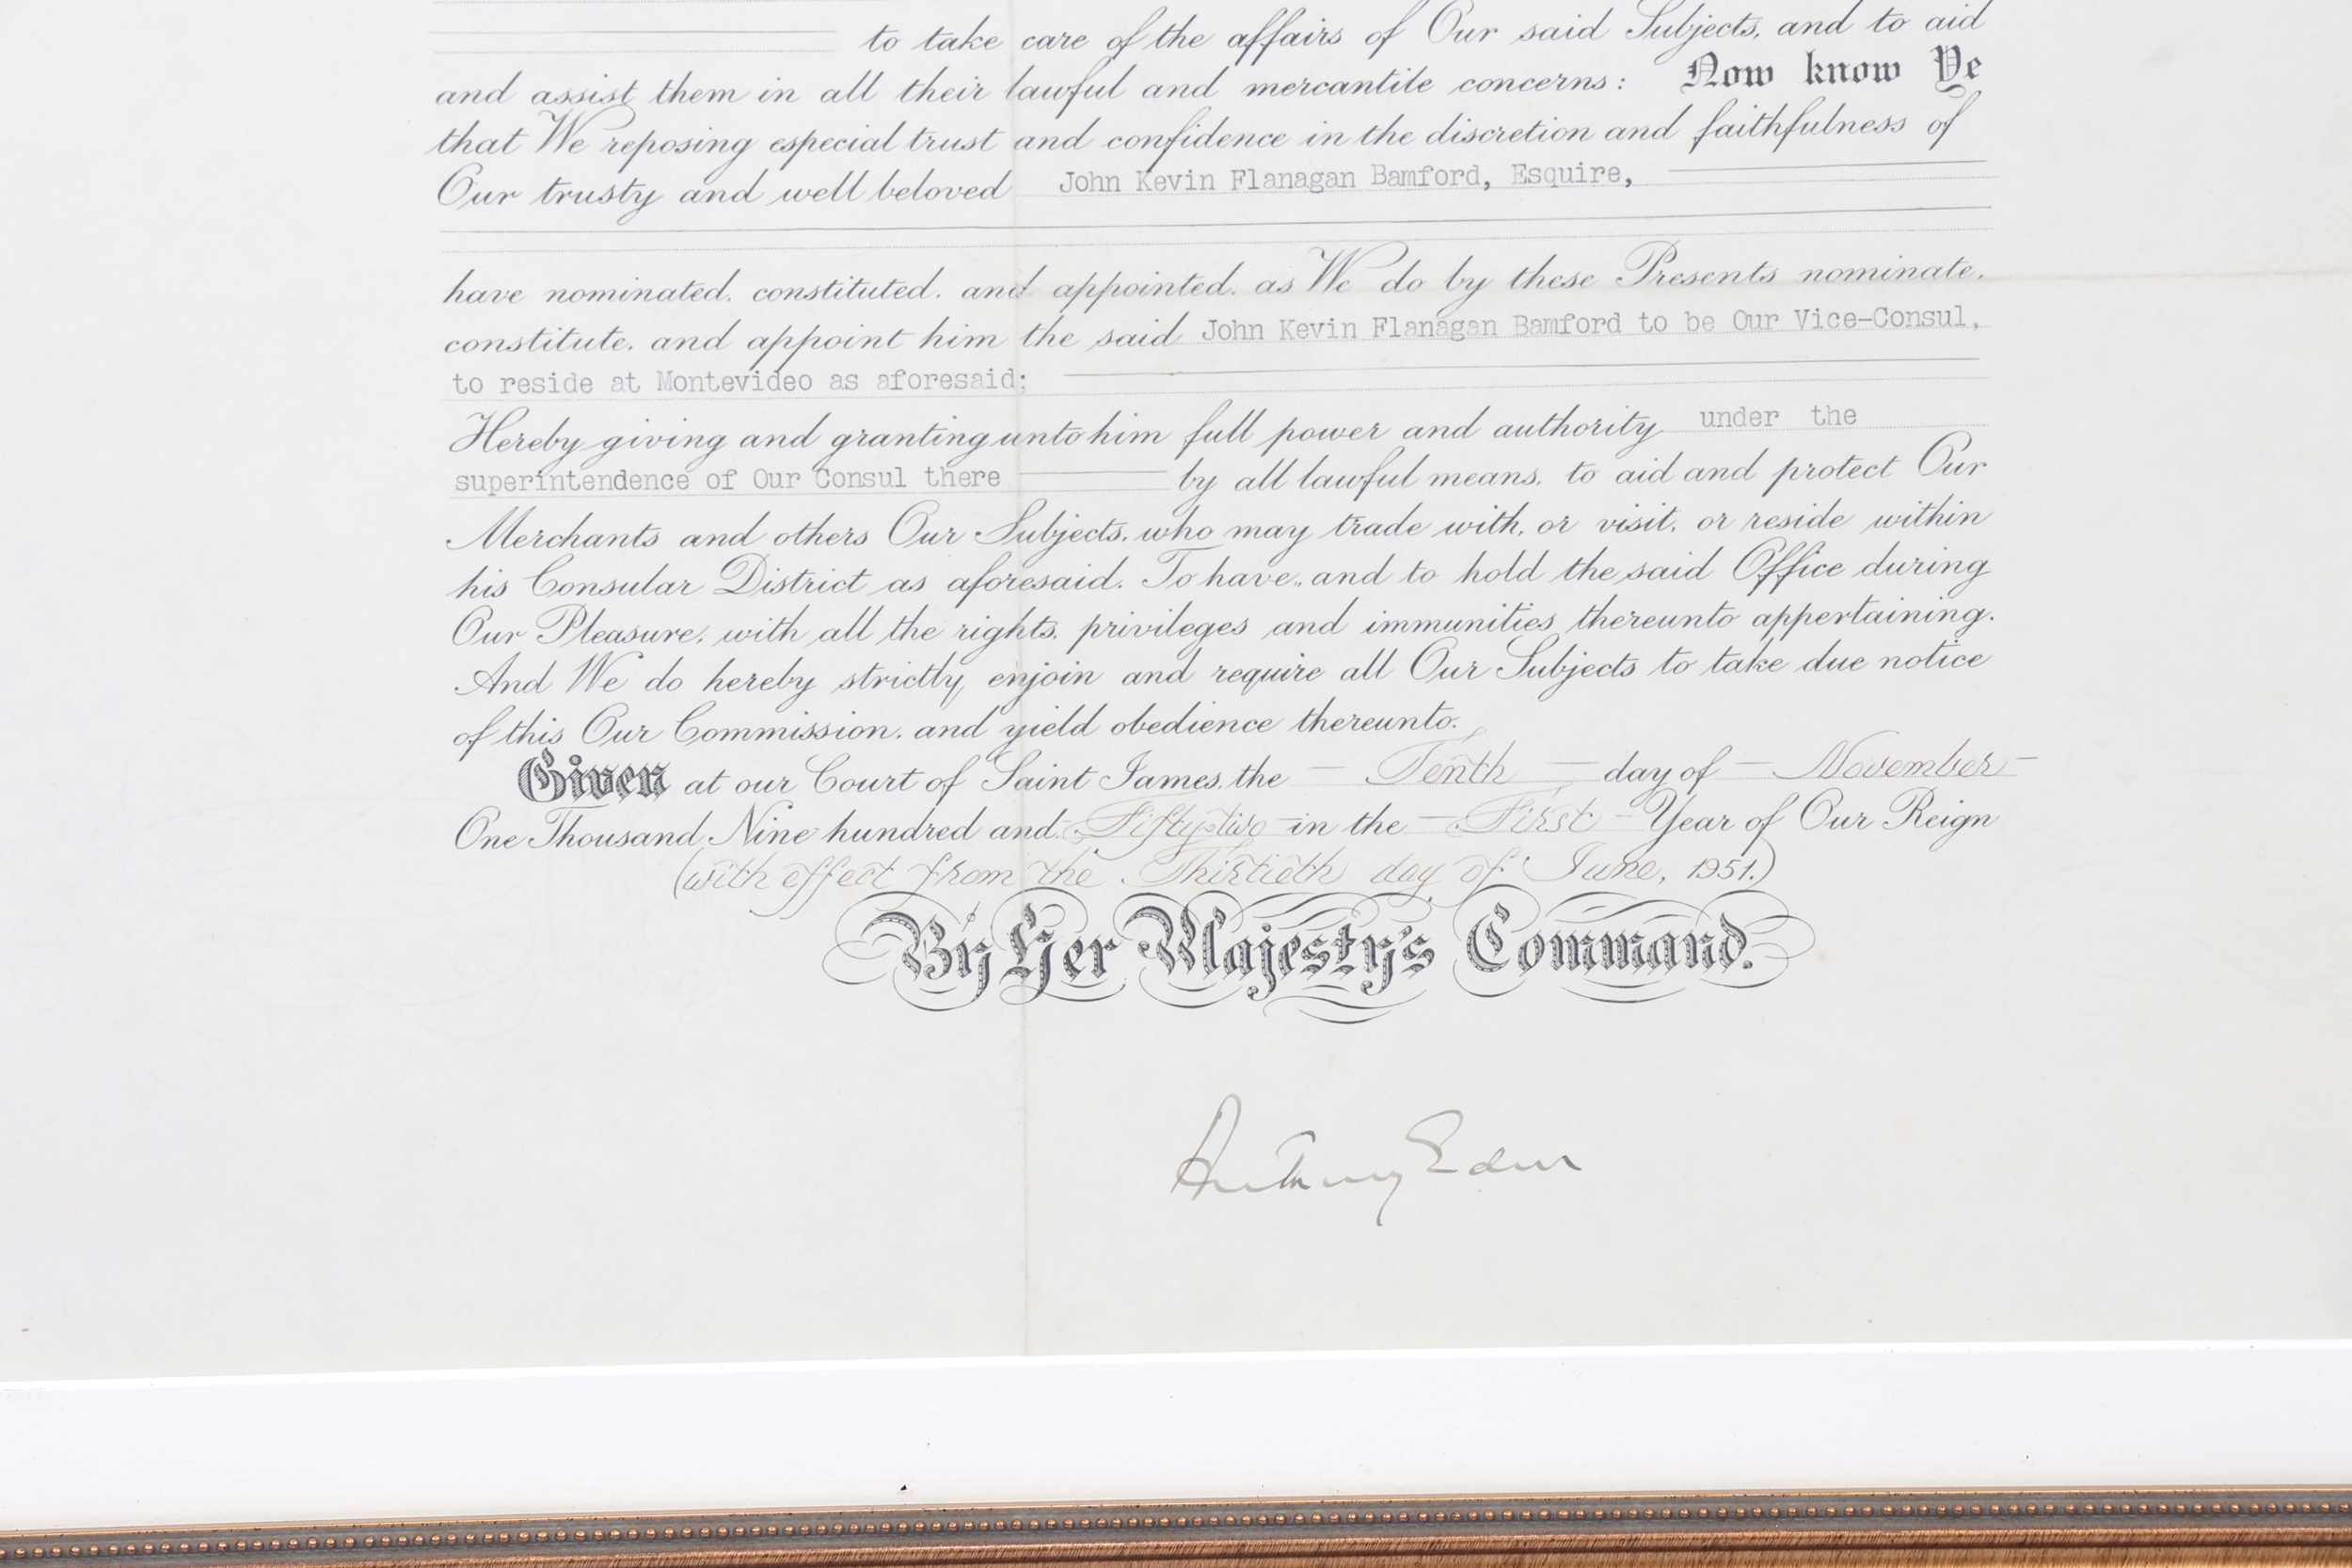 to take care of the affairs of Our said Subjects, and to aid
and assist them in all their lawful and mercantile concerns: Now know Ye
that We reposing especial trust and confidence in the discretion and faithfulness of
Our trusty and well beloved John Kevin Flanagan Bamford, Esquire,
have nominated, constituted, and appointed, as We do by these Presents nominate,
constitute, and appoint him the said John Kevin Flanagan Bamford to be Our Vice-Consul,
to reside at Montevideo as aforesaid;
Hereby giving and granting unto him full power and authority under the
superintendence of Our Consul there by all lawful means, to aid and protect Our
Merchants and others Our Subjects, who may trade with, or visit, or reside within
his Consular District as aforesaid. To have, and to hold the said Office during
Our Pleasure, with all the rights, privileges and immunities thereunto appertaining.
And We do hereby strictly enjoin and require all Our Subjects to take due notice
of this Our Commission, and yield obedience thereunto.
Given at our Court of Saint James, the — Tenth — day of — November —
One Thousand Nine hundred and Fifty-two — in the — First — Year of Our Reign
(with effect from the Thirtieth day of June, 1951.)
By Her Majesty's Command.
Anthony Eden